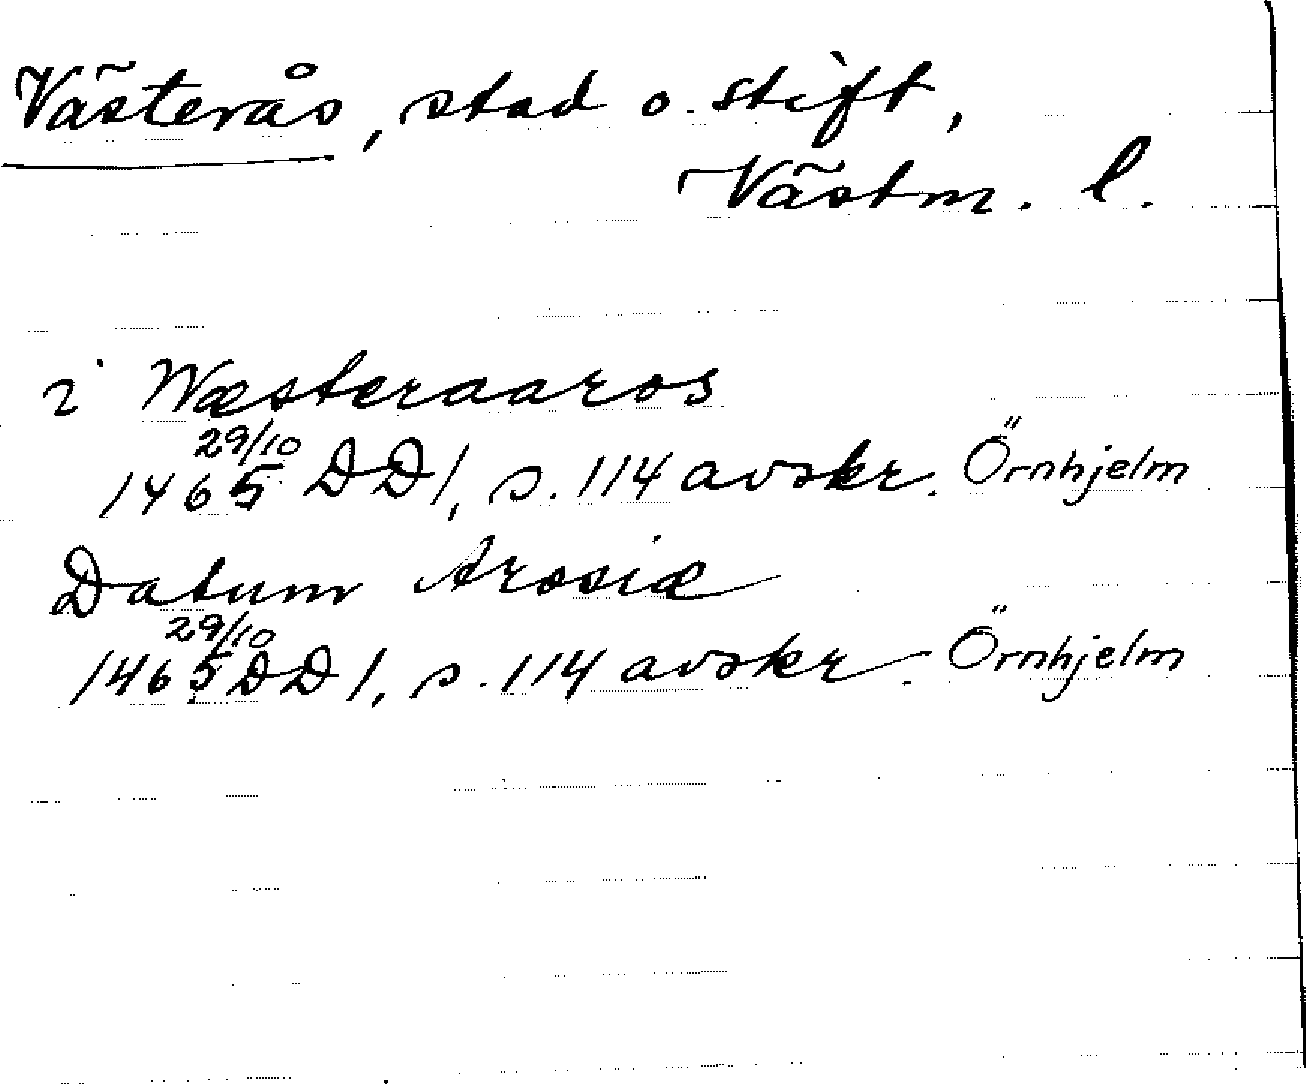 Västerås, stad o. stift,
Västm. l.
i Wæsteraaros
29/10
1465 DD 1, s. 114 avskr. Örnhjelm
Datum Arosiæ
29/10
1465 DD 1, s. 114 avskr. Örnhjelm